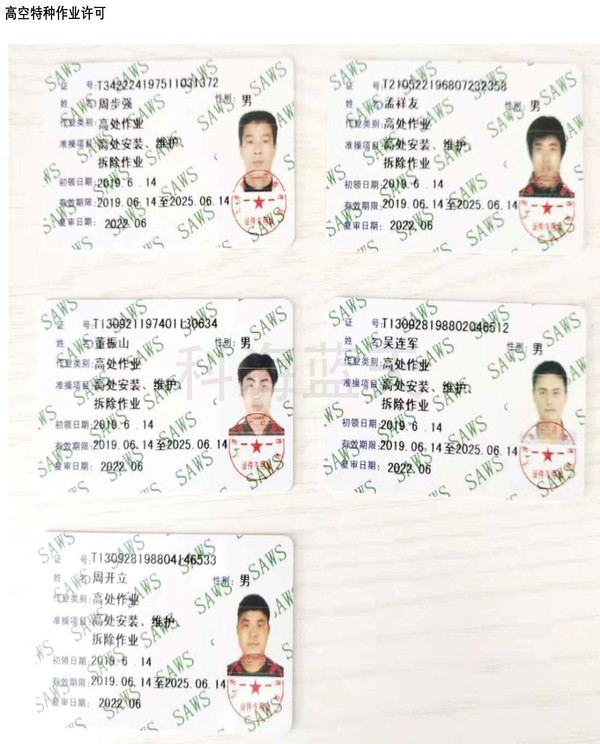 高空特种作业许可
证 号:T342224197511031372
姓 名:周步强 性别:男
作业类别:高处作业
准操项目:高处安装、维护、
拆除作业
初领日期:2019.6.14
有效期限:2019.06.14至2025.06.14
复审日期:2022.06
证 号:T210522196807232358
姓 名:孟祥友 性别:男
作业类别:高处作业
准操项目:高处安装、维护、
拆除作业
初领日期:2019.6.14
有效期限:2019.06.14至2025.06.14
复审日期:2022.06
证 号:T130921197401130634
姓 名:董振山 性别:男
作业类别:高处作业
准操项目:高处安装、维护、
拆除作业
初领日期:2019.6.14
有效期限:2019.06.14至2025.06.14
复审日期:2022.06
证 号:T130928198802046512
姓 名:吴连军 性别:男
作业类别:高处作业
准操项目:高处安装、维护、
拆除作业
初领日期:2019.6.14
有效期限:2019.06.14至2025.06.14
复审日期:2022.06
科海蓝
证 号:T130928198804146533
姓 名:周开立 性别:男
作业类别:高处作业
准操项目:高处安装、维护、
拆除作业
初领日期:2019.6.14
有效期限:2019.06.14至2025.06.14
复审日期:2022.06
SAWS